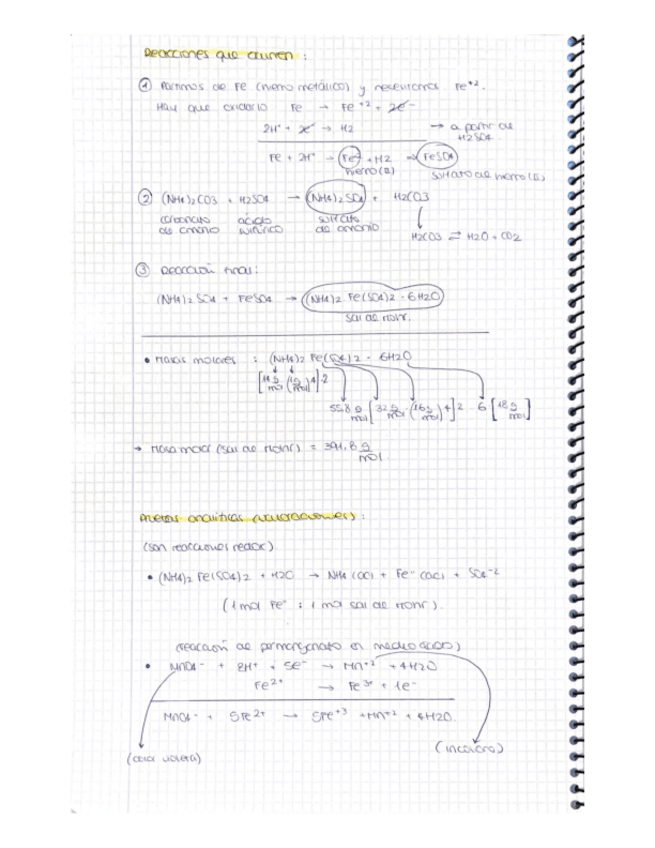 Reacciones que ocurren :
① Partimos de Fe (hierro metálico) y necesitamos Fe+2.
Hay que oxidarlo Fe → Fe+2 + 2e-
2H+ + 2e- → H2 → a partir de H2SO4
Fe + 2H+ → Fe2+ + H2 → FeSO4
hierro (II) sulfato de hierro (II)
② (NH4)2CO3 + H2SO4 → (NH4)2SO4 + H2CO3
carbonato de amonio ácido sulfúrico sulfato de amonio
H2CO3 ⇄ H2O + CO2
③ Reacción final:
(NH4)2SO4 + FeSO4 → (NH4)2 Fe(SO4)2 · 6H2O
sal de Mohr.
• Masas molares : (NH4)2 Fe(SO4)2 · 6H2O
[14 g/mol (1 g/mol) 4] · 2
55.8 g/mol [32 g/mol · (16 g/mol) 4] 2 6 [18 g/mol]
→ Masa molar (sal de Mohr) = 391.8 g/mol
Pruebas analíticas (valoraciones) :
(son reacciones redox)
• (NH4)2 Fe(SO4)2 + H2O → NH4 (ac) + Fe (ac) + SO4-2
(1 mol Fe : 1 mol sal de Mohr).
(reacción de permanganato en medio ácido)
• MnO4- + 8H+ + 5e- → Mn+2 + 4H2O
Fe2+ → Fe3+ + 1e-
MnO4- + 5Fe2+ → 5Fe+3 + Mn+2 + 4H2O.
(color violeta) (incoloro)